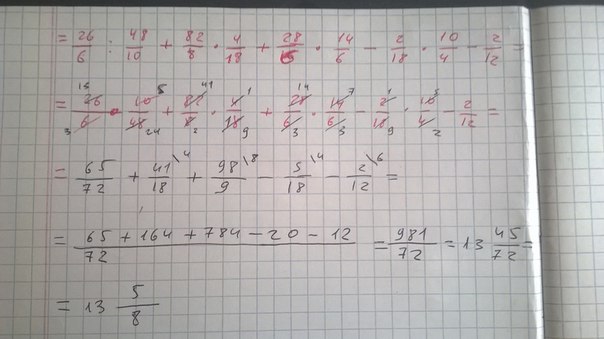 = 26/6 : 48/10 + 82/8 · 4/18 + 28/6 · 14/6 − 2/18 · 10/4 − 2/12 =
= 26/6 · 10/48 + 82/8 · 4/18 + 28/6 · 14/6 − 2/18 · 10/4 − 2/12 =
= 65/72 + 41/18 \4 + 98/9 \8 − 5/18 \4 − 2/12 \6 =
= (65 + 164 + 784 − 20 − 12)/72 = 981/72 = 13 45/72 =
= 13 5/8